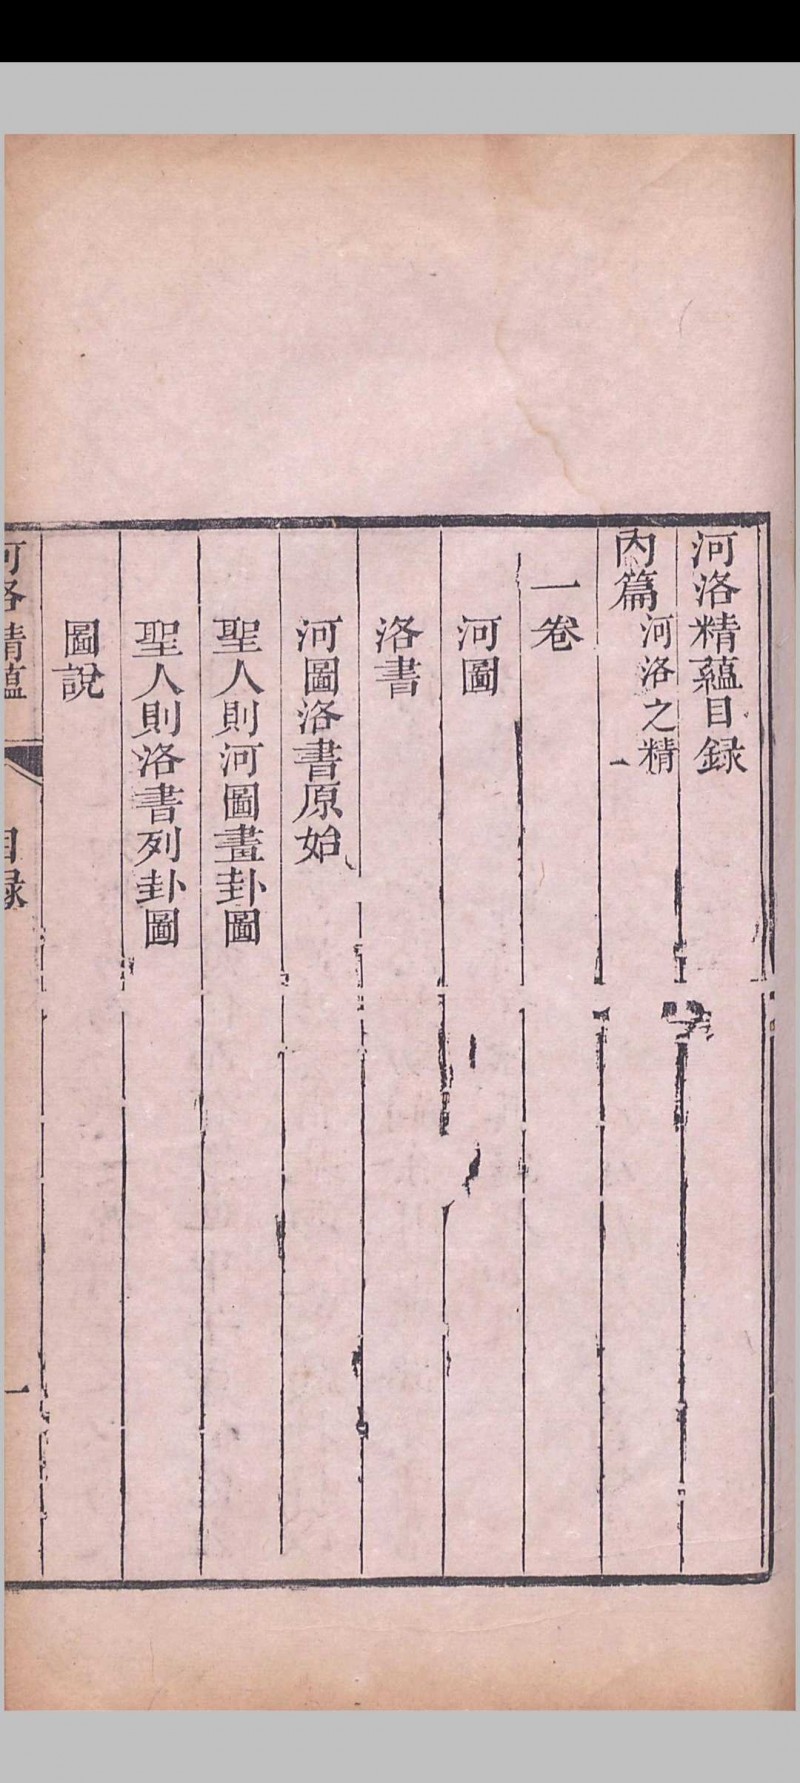 河洛精蘊目録
内篇 河洛之精
一卷
河圖
洛書
河圖洛書原始
聖人則河圖畫卦圖
聖人則洛書列卦圖
圖說
河洛精蘊 目録 一